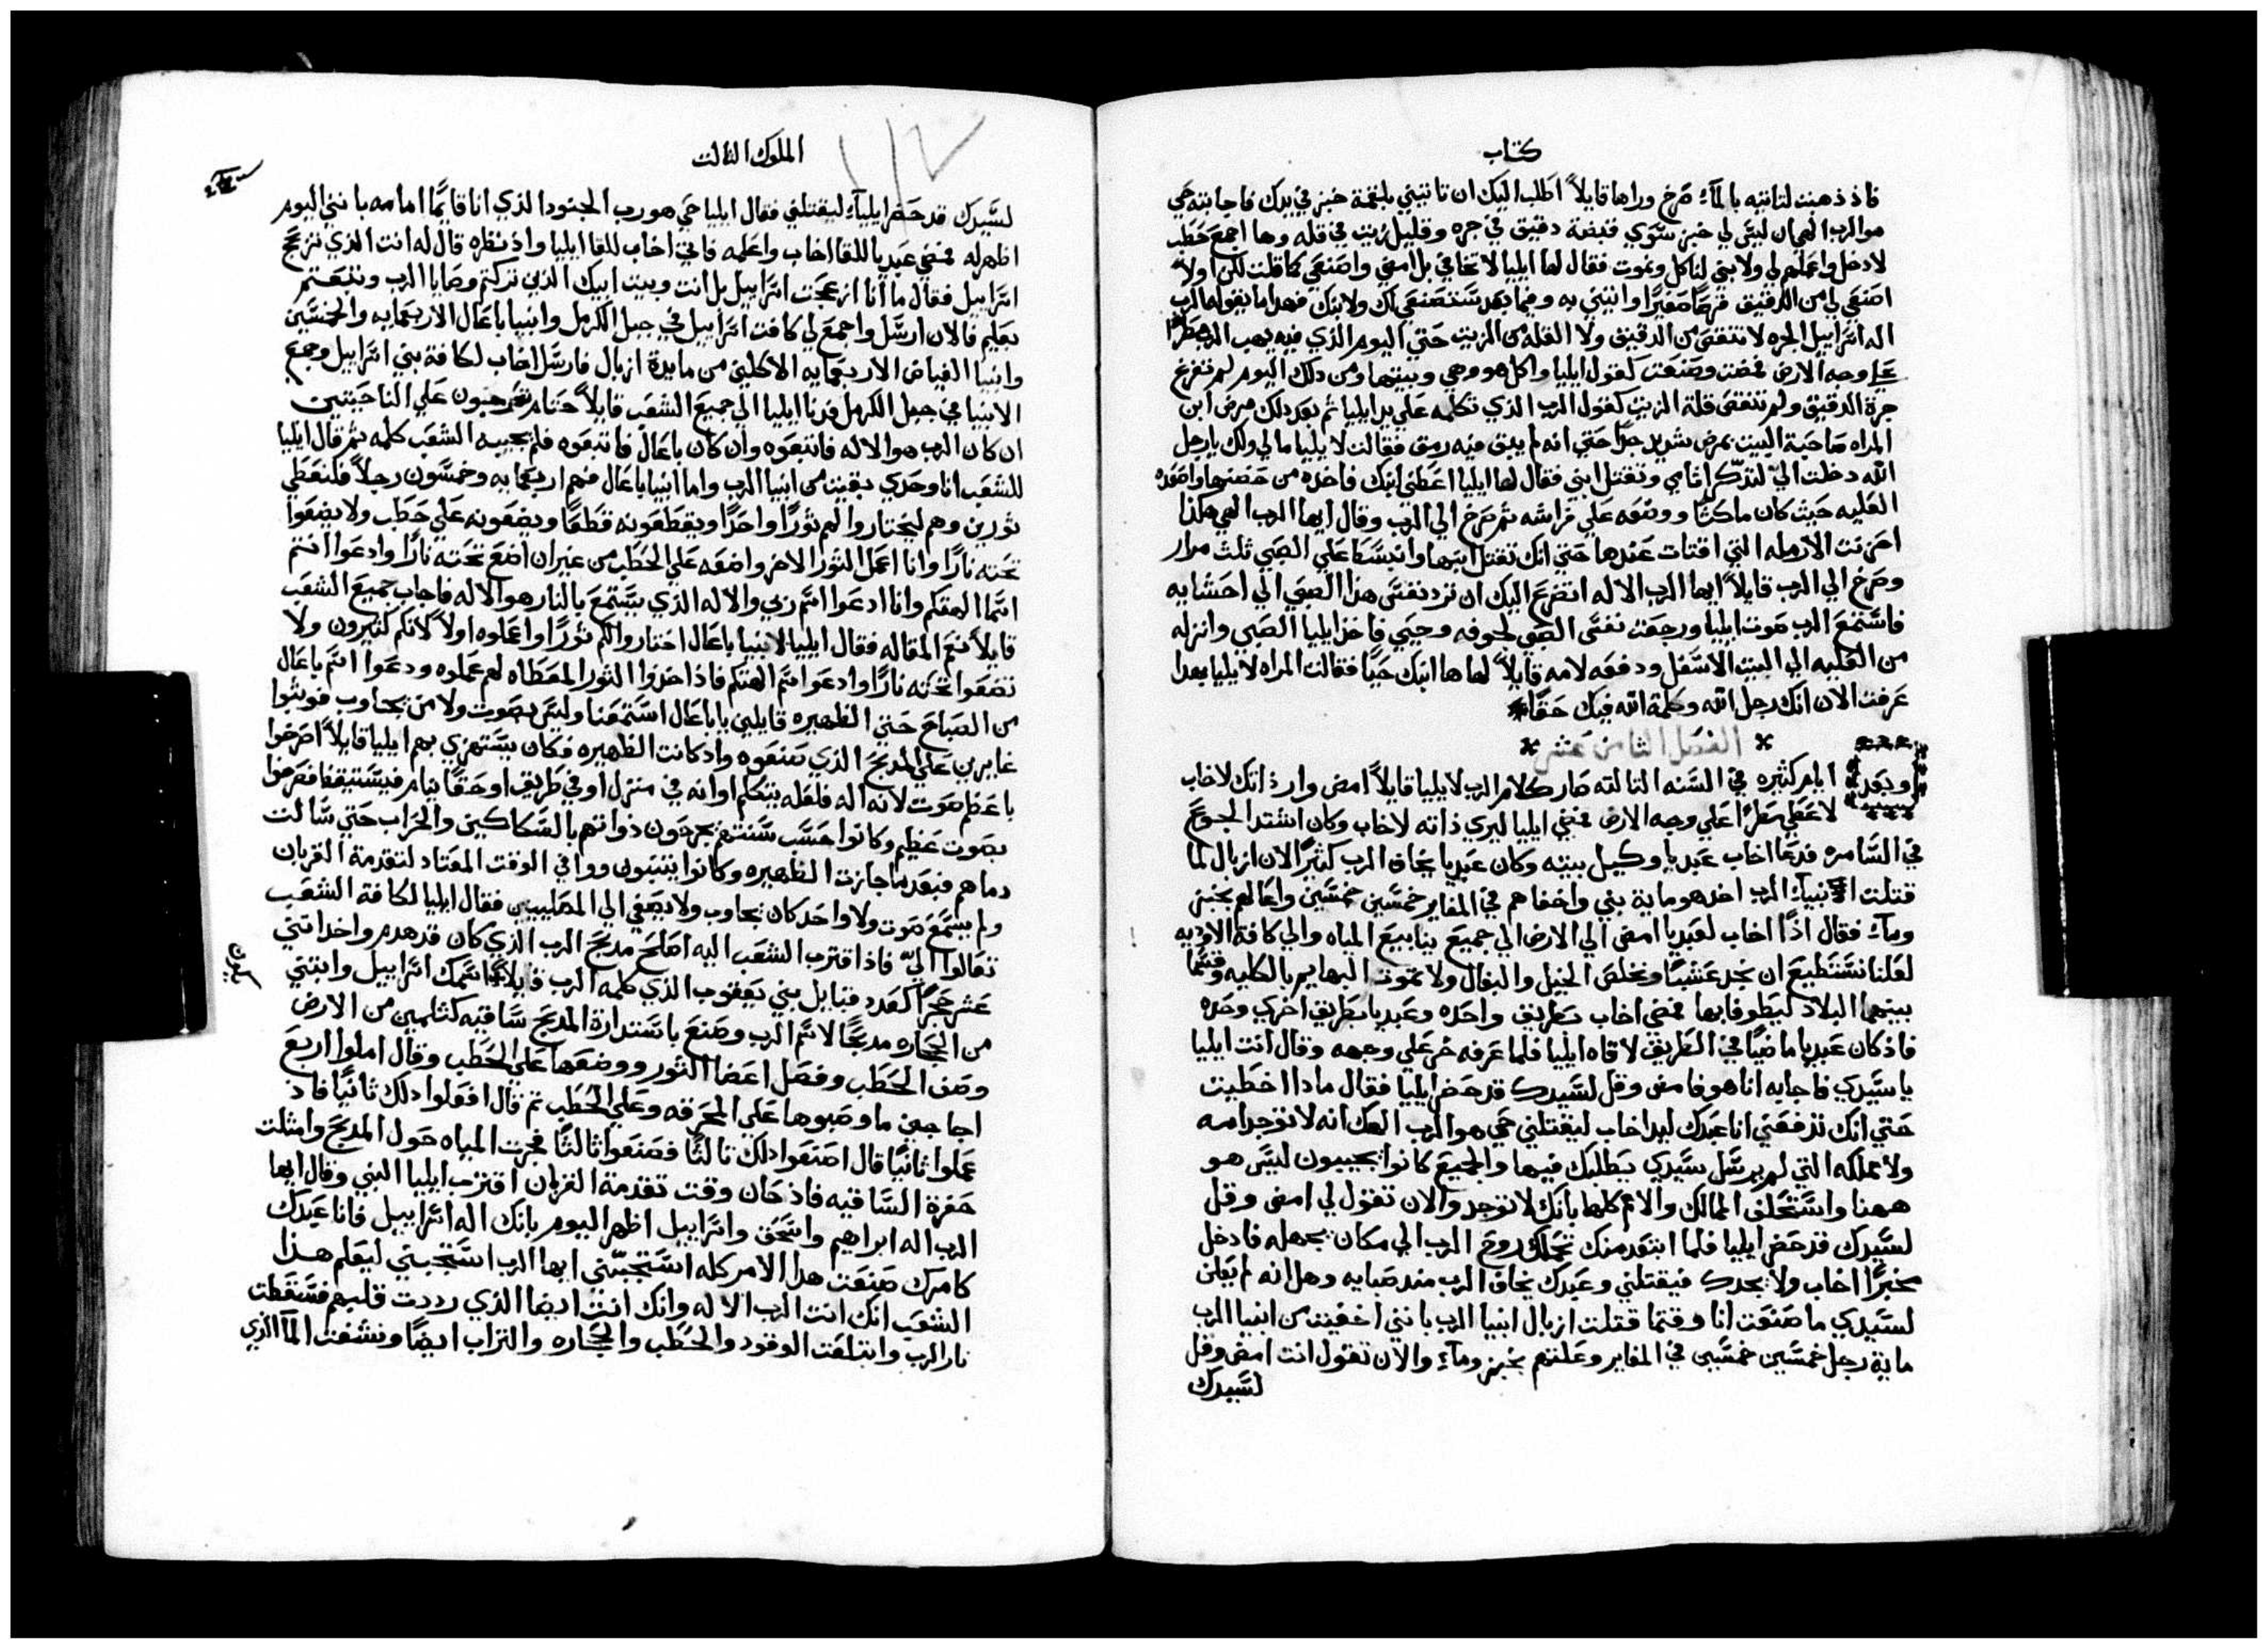 كتاب
فاذ ذهبت لتاتيه بالمآء صرخ وراها قايلاً اطلب اليك ان تاتيني بلقمة خبز في يدك فاجابته حي
هو الرب الهي ان ليس لي خبز سوي قبضة دقيق في جره وقليل زيت في قله وها اجمع حطب
لادخل واعمله لي ولابني لناكل ونموت فقال لها ايليا لا تخافي بل امضي واصنعي كما قلت لكن اولاً
اصنعي لي من الدقيق قرصًا صغيرًا واتيني به وفيما بعد ستصنعي لك ولابنك فهذا ما يقوله الرب
اله اسراييل الجره لا تنقص من الدقيق ولا القله من الزيت حتي اليوم الذي فيه يهب الرب مطرًا
علي وجه الارض فمضت وصنعت كقول ايليا واكل هو وهي وبيتها ومن ذلك اليوم لم تفرغ
جرة الدقيق ولم تنقص قلة الزيت كقول الرب الذي تكلمه علي يد ايليا ثم بعد ذلك مرض ابن
المراه صاحبة البيت بمرض شديد جدًا حتي انه لم يبق فيه رمق فقالت لايليا ما لي ولك يا رجل
الله دخلت اليّ لتذكّر اثامي وتقتل ابني فقال لها ايليا اعطني ابنك فاخذه من حضنها واصعده
العليه حيث كان ماكثًا ووضعه علي فراشه ثم صرخ الي الرب وقال ايها الرب الهي هكذا
احزنت الارمله التي اقتات عندها حتي انك تقتل ابنها وانبسط علي الصبي ثلث مرار
وصرخ الي الرب قايلاً ايها الرب الاله اتضرع اليك ان ترد نفس هذا الصبي الي احشايه
فاستمع الرب صوت ايليا ورجعت نفس الصبي لجوفه وحيي فاخذ ايليا الصبي وانزله
من العليه الي البيت الاسفل ودفعه لامه قايلاً لها ها ابنك حيًا فقالت المراه لايليا بهذا
عرفت الان انك رجل الله وكلمة الله فيك حقًا
الفصل الثامن عشر
وبعد ايام كثيره في السنه الثالثه صار كلام الرب لايليا قايلاً امض وار ذاتك لاخاب
لاعطي مطرًا علي وجه الارض فمضي ايليا ليري ذاته لاخاب وكان اشتد الجوع
في السامره فدعا اخاب عبديا وكيل بيته وكان عبديا يخاف الرب كثيرًا لان ازبال لما
قتلت انبيآء الرب اخذ هو ماية نبي واخفاهم في المغاير خمسين خمسين واعالهم بخبز
ومآء فقال اذًا اخاب لعبديا امض الي الارض الي جميع ينابيع المياه والي كافة الاوديه
لعلنا نستطيع ان نجد عشبًا ونخلص الخيل والبغال ولا تموت البهايم بالكليه وقسما
بينهما البلاد ليطوفا بها فمضي اخاب بطريق واحده وعبديا بطريق اخري وحده
فاذ كان عبديا ماضيًا في الطريق لاقاه ايليا فلما عرفه خر علي وجهه وقال انت ايليا
يا سيدي فاجابه انا هو فامض وقل لسيدك قد حضر ايليا فقال ماذا اخطيت
حتي انك تدفعني انا عبدك ليد اخاب ليقتلني حي هو الرب الهك انه لا توجد امه
ولا مملكه التي لم يرسل سيدي يطلبك فيها والجميع كانوا يجيبون ليس هو
ههنا واستحلف الممالك والامم كلها بانك لا توجد والان تقول لي امض وقل
لسيدك قد حضر ايليا فلما ابتعد منك تحملك روح الرب الي مكان بجهله فادخل
مخبرًا اخاب ولا يجدك فيقتلني وعبدك يخاف الرب منذ صبايه وهل انه لم يعلن
لسيدي ما صنعت انا وقتما قتلت ازبال انبيا الرب بانني اخفيت من انبيا الرب
ماية رجل خمسين خمسين في المغاير وعلتهم بخبز ومآء والان تقول انت امض وقل
لسيدك
الملوك الثالث
لسيدك قد حضر ايليآء ليقتلني فقال ايليا حي هو رب الجنود الذي انا قايمًا امامه بانني اليوم
اظهر له فمضي عبديا للقا اخاب واعلمه فاتي اخاب للقا ايليا واذ نظره قال له انت الذي تزعج
اسراييل فقال ما انا ازعجت اسراييل بل انت وبيت ابيك الذين تركتم وصايا الرب وتبعتم
بعليم فالان ارسل واجمع لي كافة اسراييل في جبل الكرمل وانبيا باعال الاربعمايه والخمسين
وانبيا الغياض الاربعمايه الاكلين من مايدة ازبال فارسل اخاب لكافة بني اسراييل وجمع
الانبيا في جبل الكرمل فدنا ايليا الي جميع الشعب قايلاً حتام تعرجون علي الناحيتين
ان كان الرب هو الاله فاتبعوه وان كان باعال فاتبعوه فلم يجيبه الشعب كلمه ثم قال ايليا
للشعب انا وحدي بقيت من انبيا الرب واما انبيا باعال فهم اربعمايه وخمسون رجلاً فلنعطي
ثورين وهم ليختاروا لهم ثورًا واحدًا ويقطعونه قطعًا ويضعونه علي حطب ولا يضعوا
تحته نارًا وانا اعمل الثور الاخر واضعه علي الحطب من غير ان اضع تحته نارًا وادعوا انتم
اسما الهتكم وانا ادعوا اسم ربي والاله الذي يستمع بالنار هو الاله فاجاب جميع الشعب
قايلاً نعم المقاله فقال ايليا لانبيا باعال اختاروا لكم ثورًا واعملوه اولاً لانكم كثيرون ولا
تضعوا تحته نارًا وادعوا اسم الهتكم فاذ اخذوا الثور المعطاه لهم عملوه ودعوا اسم باعال
من الصباح حتي الظهيره قايلين يا باعال استمعنا وليس بصوت ولا من يجاوب فوثبوا
عابرين علي المدبح الذي صنعوه واذ كانت الظهيره فكان يستهزي بهم ايليا قايلاً اصرخوا
باعظم صوت لانه اله فلعله يتكلم او انه في منزل او في طريق او حقًا ينام فيستيقظ فصرخوا
بصوت عظيم وكانوا حسب سنتهم يجرحون ذواتهم بالسكاكين والحراب حتي سالت
دماهم فبعد ما جازت الظهيره وكانوا يتنبون ووافي الوقت المعتاد لتقدمة القربان
ولم يسمع صوت ولا واحد كان يجاوب ولا يصغي الي المصليين فقال ايليا لكافة الشعب
تعالوا اليّ فاذ اقترب الشعب اليه اصلح مدبح الرب الذي كان قد هدم واخذ اثني
عشر حجرًا كعدد قبايل بني يعقوب الذي كلمه الرب قايلاً اسمك اسراييل وابتني
من الحجاره مدبحًا لاسم الرب وصنع باستدارة المدبح ساقيه كثلمين من الارض
وصف الحطب وفصل اعضا الثور ووضعها علي الحطب وقال املوا اربع
اجاجين ما وصبوها علي المحرقه وعلي الحطب ثم قال افعلوا ذلك ثانيًا فاذ
عملوا ثانيًا قال اصنعوا ذلك ثالثًا فصنعوا ثالثًا فجرت المياه حول المدبح وامثلت
حفرة الساقيه فاذ حان وقت تقدمة القربان اقترب ايليا النبي وقال ايها
الرب اله ابراهيم واسحق واسراييل اظهر اليوم بانك اله اسراييل فانا عبدك
كامرك صنعت هذا الامر كله استجبني ايها الرب استجبني ليعلم هذا
الشعب انك انت الرب الاله وانك انت ايضا الذي رددت قلبهم فسقطت
نار الرب وابتلعت الوقود والحطب والحجاره والتراب ايضًا ونشفت المآ الذي